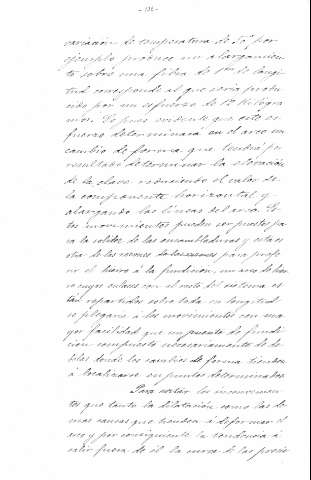 - 132 -
variación de temperatura de 15°, por
ejemplo produce un alargamien-
to sobre una fibra de 1m de longi-
tud correspondente al que sería produ-
cido por un esfuerzo de kilogra-
mos. Es pues evidente que este es-
fuerzo determinará en el arco un
cambio de forma que tendrá por
resultado determinar la elevación
de la clave, reduciendo el valor de
la componente horizontal y
alargando las líneas del arco. Es-
tos movimientos pueden ser pues
la solidez de las ensambladuras y esta es
otra de las razones para prefe-
rir el hierro á la fundicion, un arco de hier-
ro cuyos enlaces con el resto del sistema es-
tán repartidos sobre toda su longitud
se plegará á los movimientos con ma-
yor facilidad que un puente de fundi-
ción compuesto necesariamente de do-
belas donde los cambios de forma tienden
á localizarse en puntos determinados.
Para evitar los inconvenien-
tes que tanto la dilatación como las de-
mas causas que tienden á deformar el
arco y por consiguiente la tendencia á
salir fuera de él la curva de las presio-